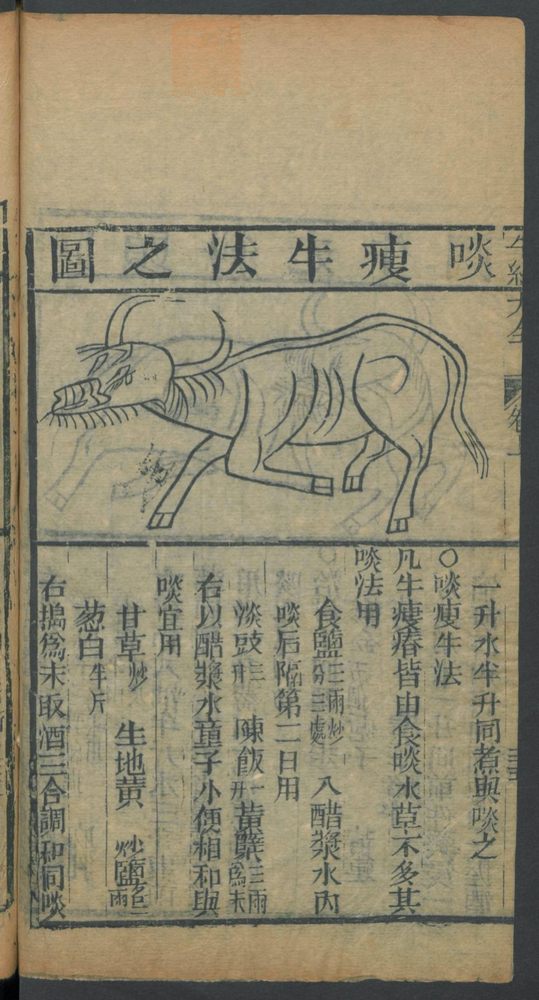 啖瘦牛法之圖
一升水半升同煮與啖之
○啖瘦牛法
凡牛瘦瘠皆由食啖水草不多其
啖法用
食鹽三兩炒分三處 入醋漿水内
啖后隔第二日用
淡豉三升 陳飯一升 黄蘗三兩爲末
右以醋漿水童子小便相和與
啖宜用
甘草炒 生地黄 炒鹽各二兩
葱白半斤
右搗爲末取酒三合調和同啖